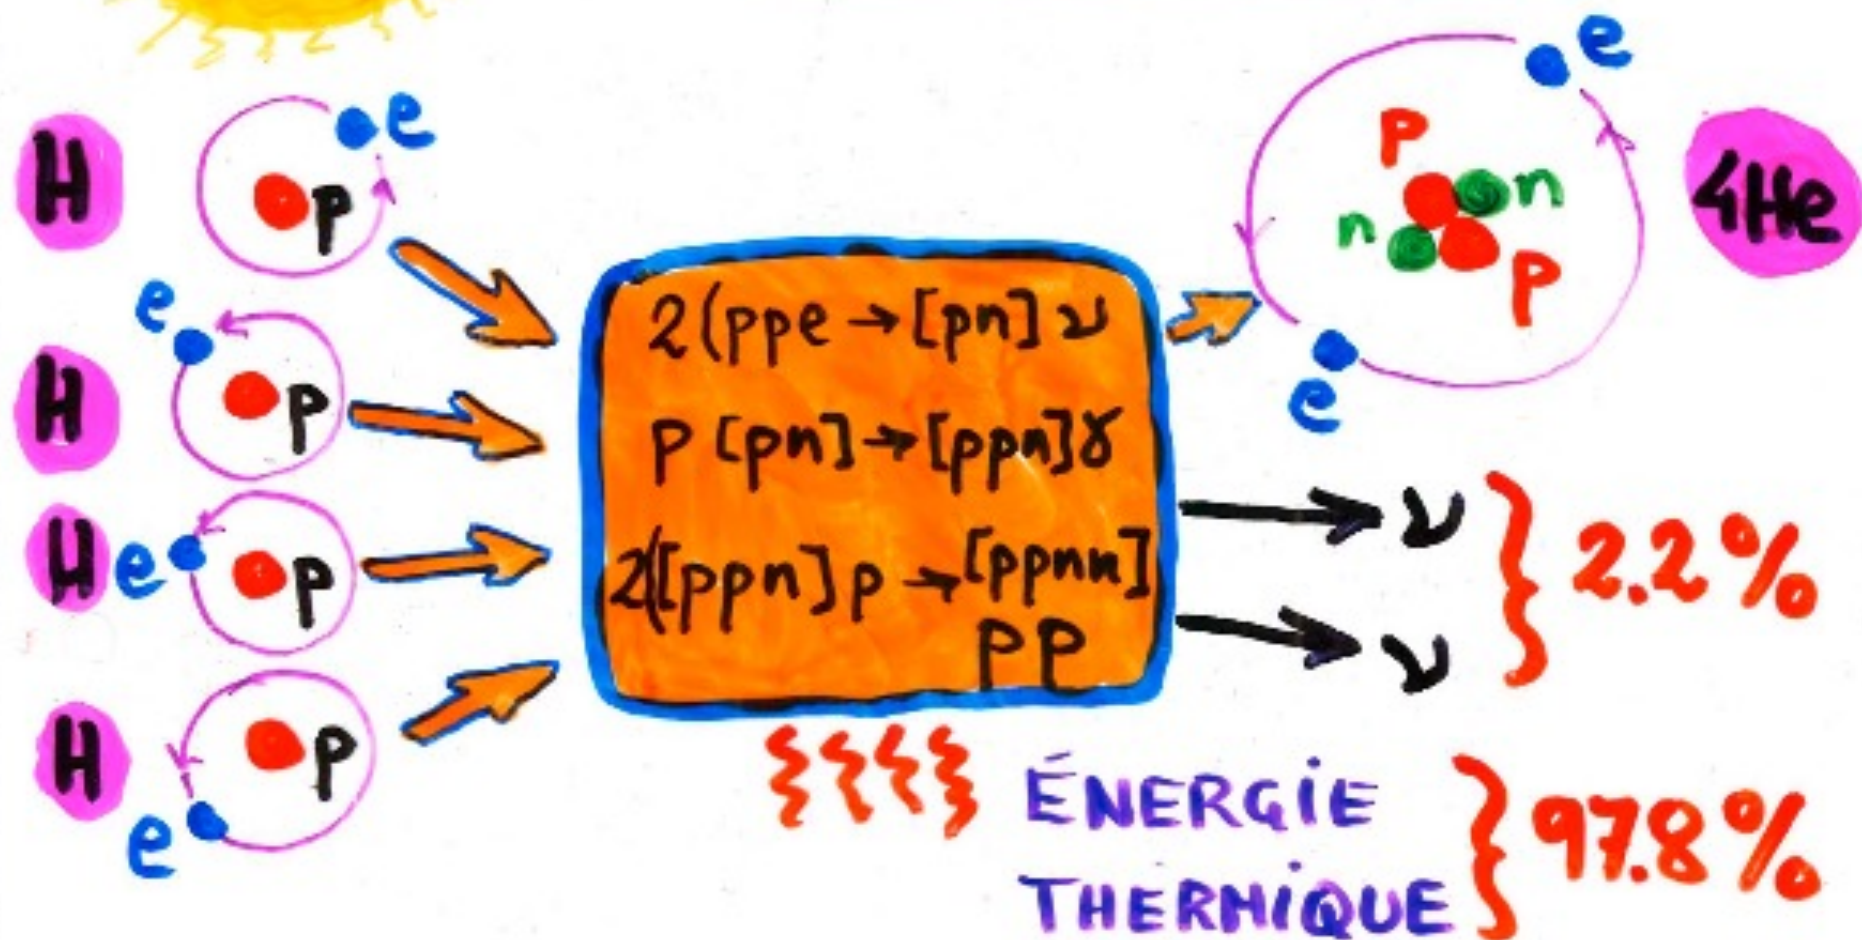 H
e
p
H
e
p
H
e
p
H
e
p
2(ppe → [pn] ν
p [pn] → [ppn]γ
2([ppn] p → [ppnn]
pp
e
p
n
n
p
e
4He
ν
ν
} 2.2%
ÉNERGIE
THERMIQUE
} 97.8%